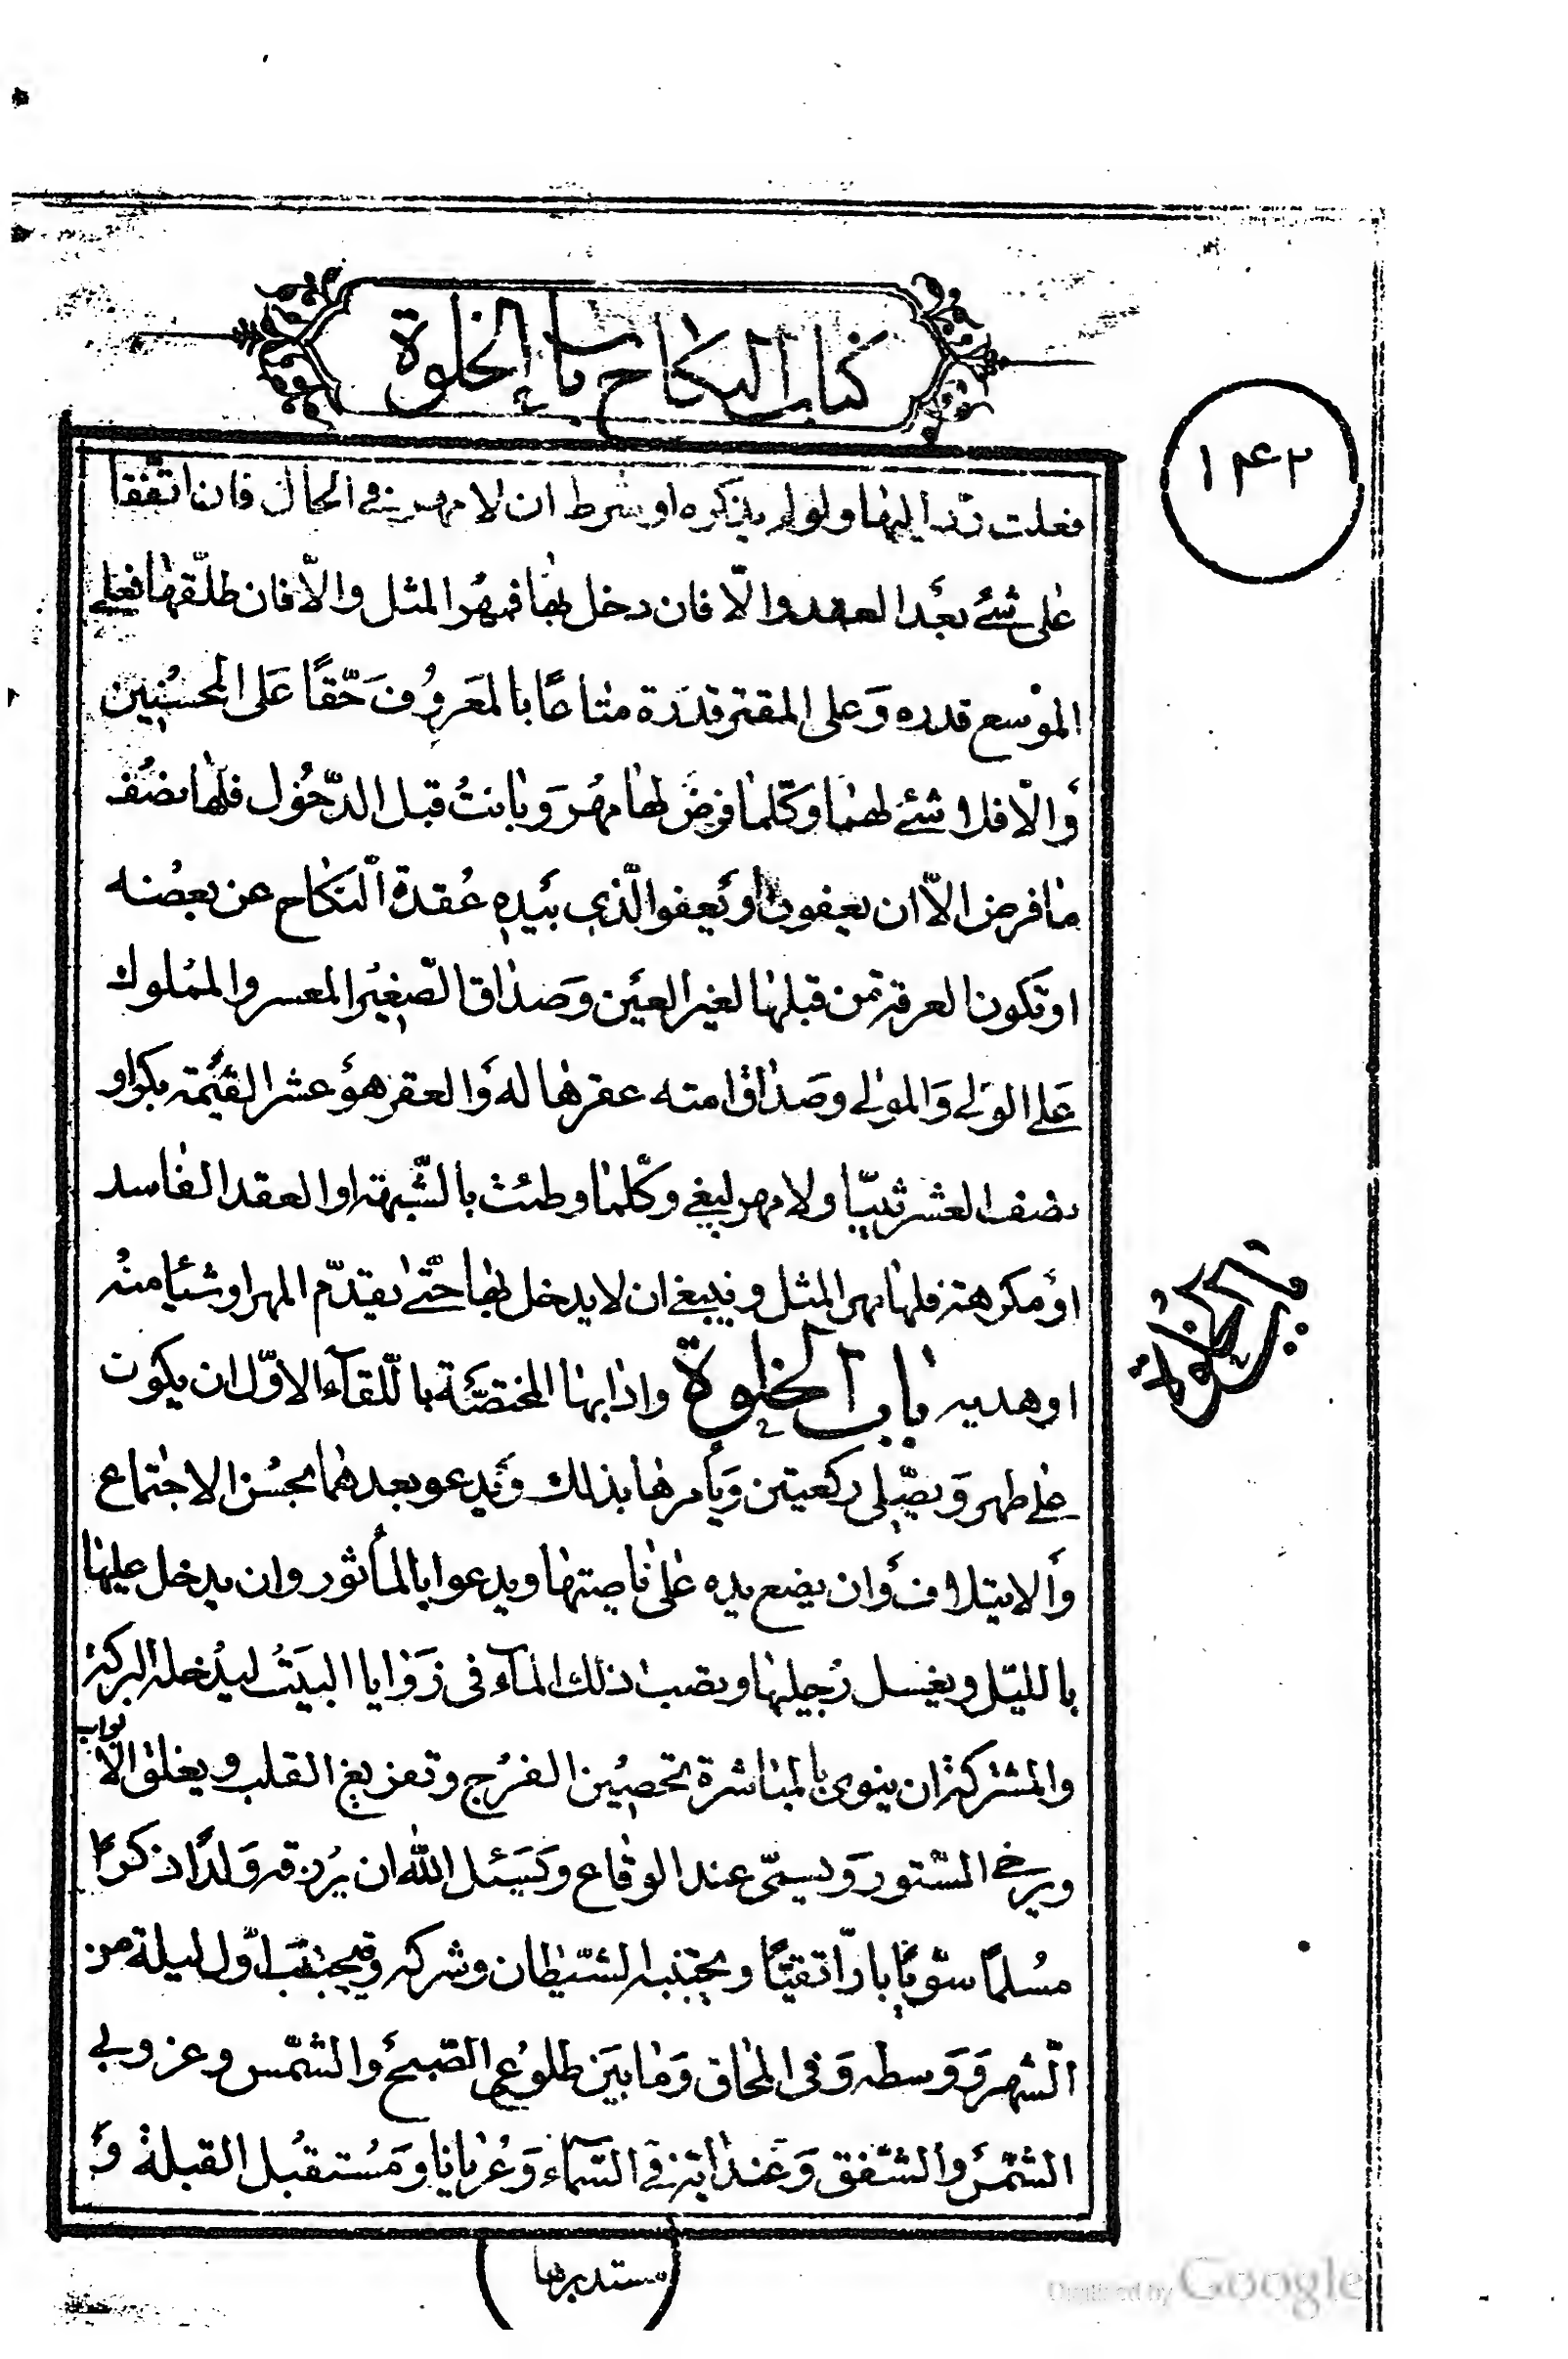 كتاب النكاح باب الخلوة
١٤٢
فعلت رد اليها ولو لم يذكره او شرط ان لا مهر في الحال فان اتفقا
على شئ بعد العقد والّا فان دخل بها فمهر المثل والّا فان طلّقها فعلى
الموسع قدره وَعلى المقتر قدَره متاعًا بالمَعرُوف حَقّاً عَلى المحسنين
وَالّا فلا شئ لها وكلّما فرض لها مهر وَبانتْ قبل الدّخول فلها نصف
ما فرض الّا ان يعفون او يَعفو الّذي بيَده عُقدة النّكاح عن بعضه
او تكون الفرقة من قبلها لغير العيَن وَصداق الصّغير المعسر والمملوك
عَلى الوَلي وَالمولى وصَداق امته عقرها له وَالعقر هوَ عشر القيَمة بكرا او
نصف العشر ثيّبا ولا مهر لبغي وكلّما وطئت بالشّبهة او العقد الفاسد
اوَ مكرهة فلها مهر المثل وينبغي ان لا يدخل بها حتّى يقدّم المهر او شيئا منه
او هدية باب الخلوة واذابها المختصّة باللّقآء الاوّل ان يكون
على طهر وَيصّلي ركعتين وَيأمرها بذلك وَيدعو بعدهما بحسْن الاجتماع
وَالايتلاف وَان يضع يده على ناصيتها ويدعوا بالمأثور وان يدخل عليها
بالليل ويغسل رُجليها ويصب ذلك المآء في زَوايا البيَت ليدْخله البركة
والمشتركة ان ينوي بالمباشرة تحصين الفرْج وتفريغ القلب ويغلق الابواب
ويرخي السّتور وَيسمّى عند الوقاع وَيَسئل الله ان يُرزقه وَلدًا ذكرًا
مسْلمًا سوّيًا بارّا تقيًّا ويجتنبه الشّيطان وشركه وَيجتنب اوّل ليلة من
الشّهر وَوَسطه وَفي المحاق وَما بيَن طلوعي الصّبح وَالشّمس وغروبي
الشّمس والشّفق وَعنَد اية في السّماء وَعُريانا ومَسُتقبل القبلة وَ
باب الخلوة
(مستدبرها)
Digitized by Google